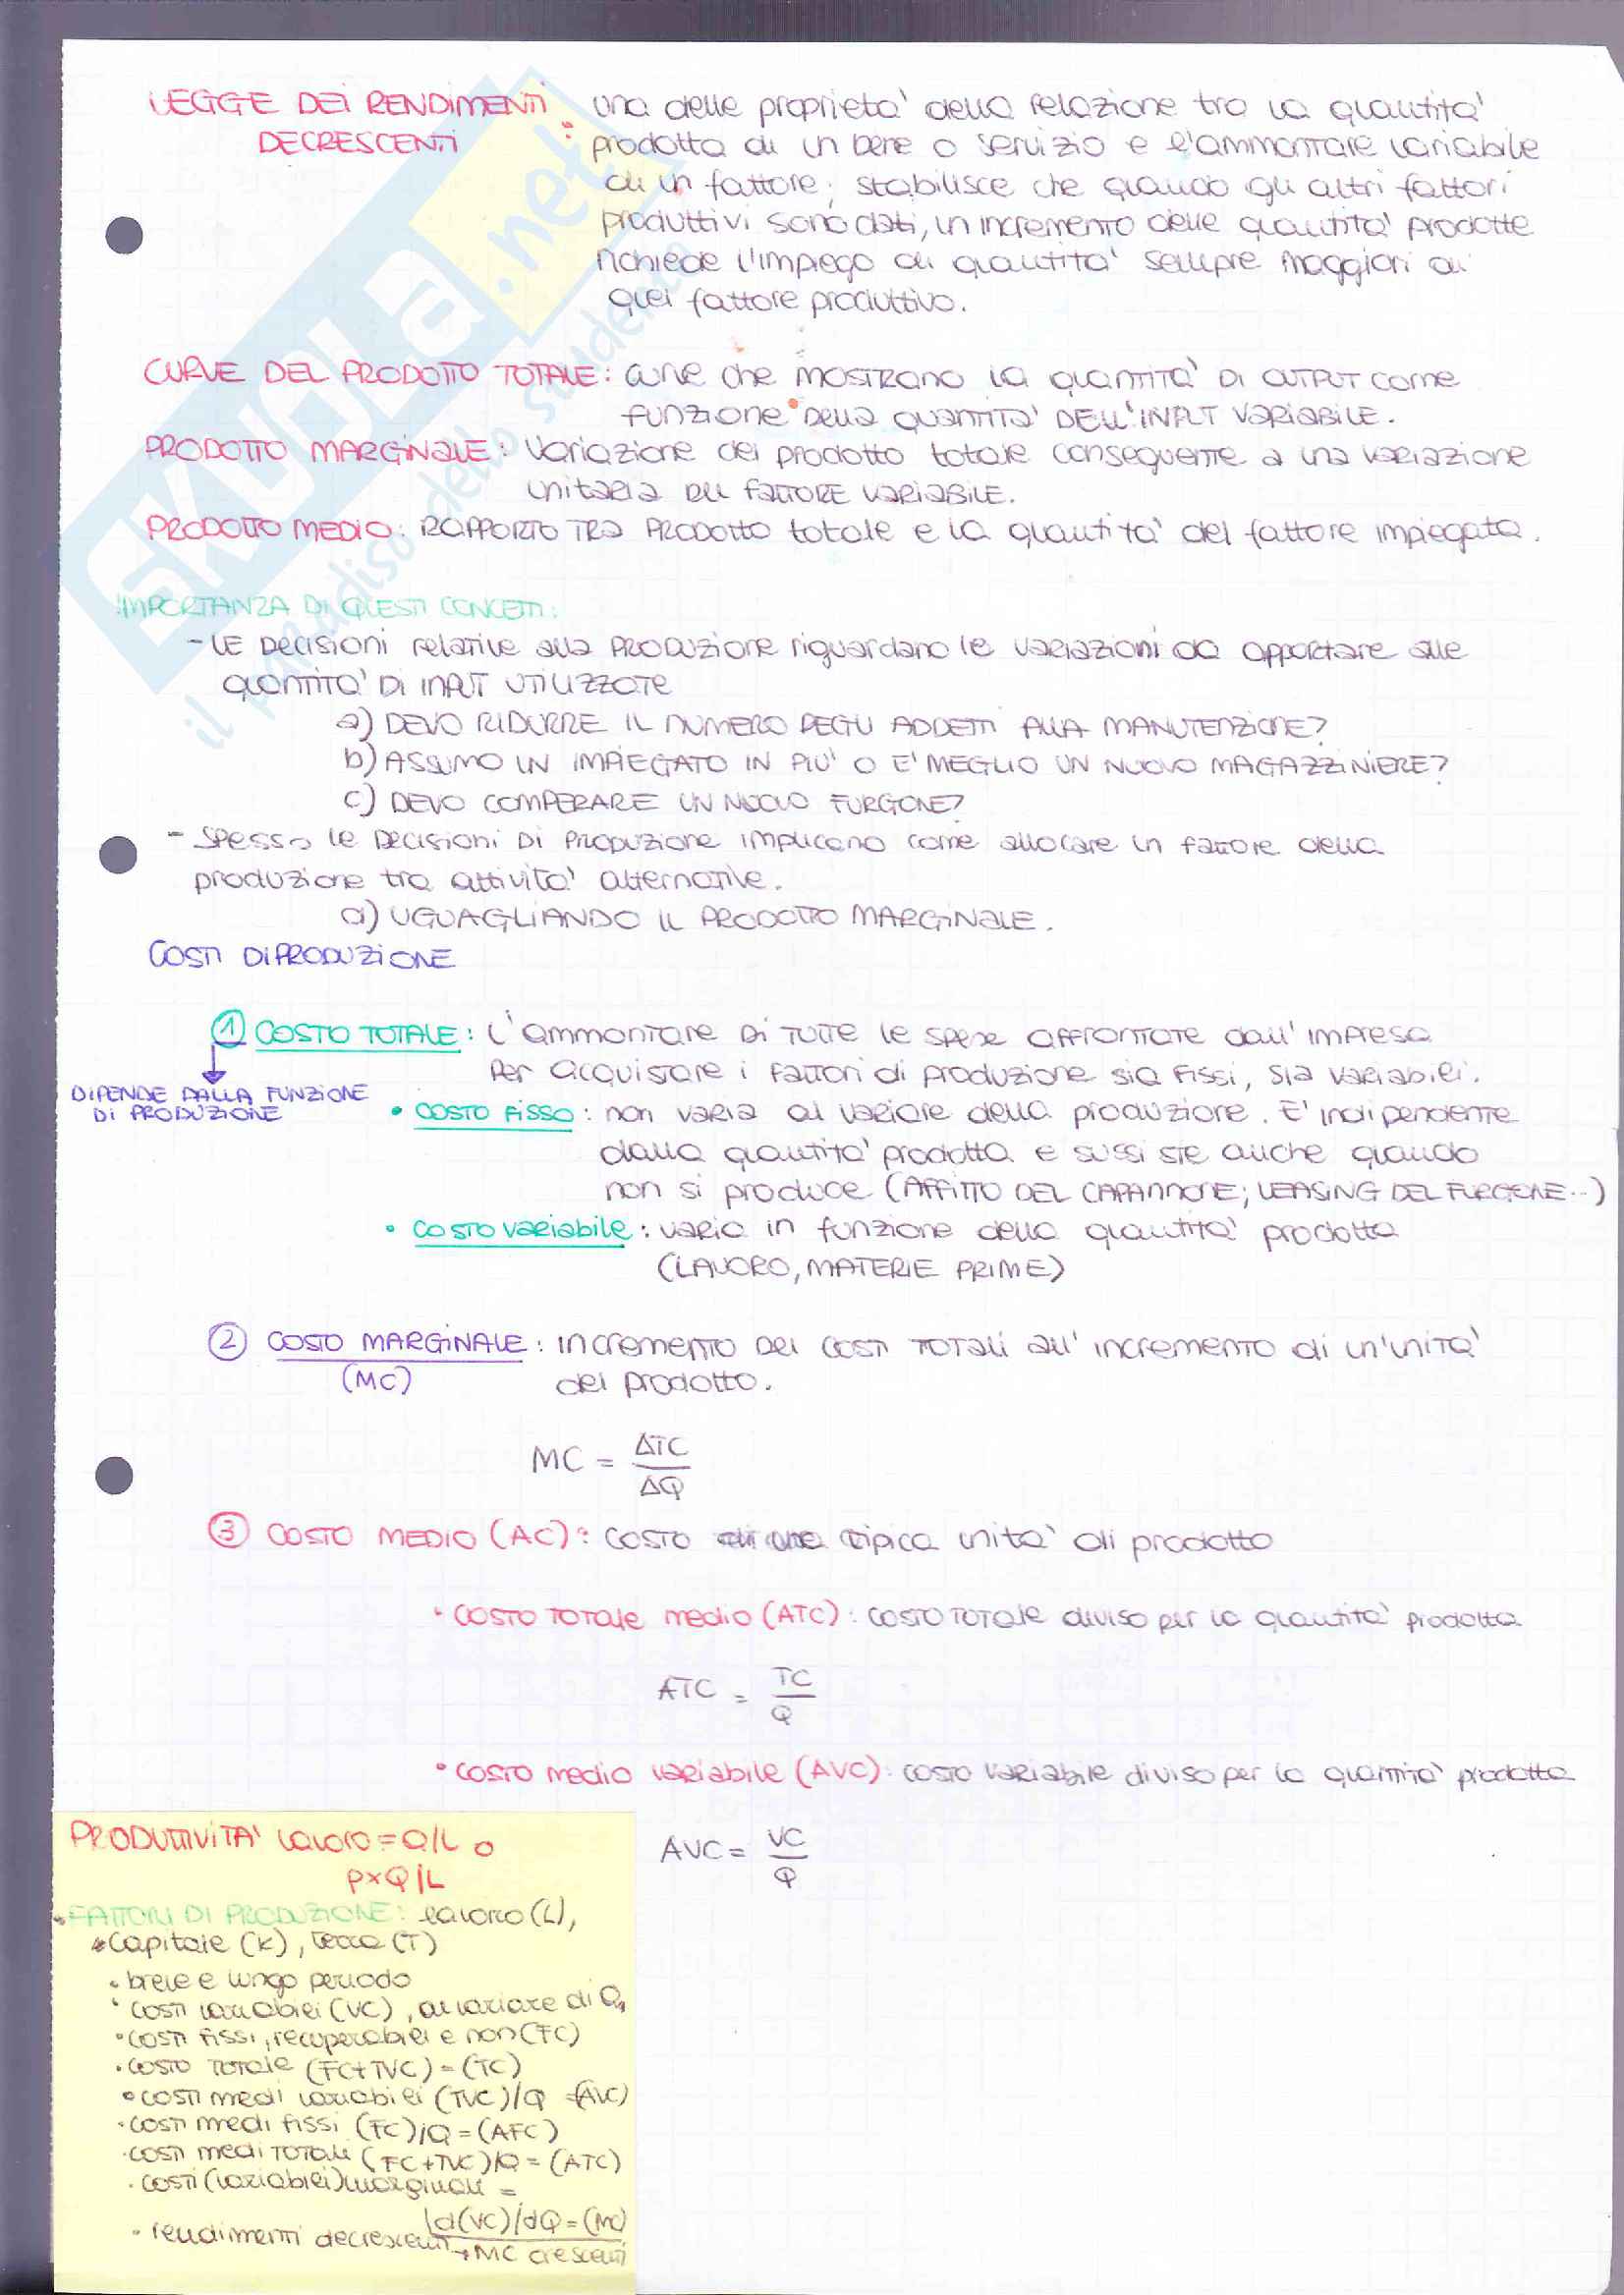 LEGGE DEI RENDIMENTI DECRESCENTI : una delle proprieta' della relazione tra la quantita'
prodotta di un bene o servizio e l'ammontare variabile
di un fattore; stabilisce che quando gli altri fattori
produttivi sono dati, un incremento delle quantita' prodotte
richiede l'impiego di quantita' sempre maggiori di
quel fattore produttivo.
CURVE DEL PRODOTTO TOTALE: curve che mostrano la quantita' di output come
funzione della quantita' dell'input variabile.
PRODOTTO MARGINALE: variazione del prodotto totale conseguente a una variazione
unitaria del fattore variabile.
PRODOTTO MEDIO: rapporto tra prodotto totale e la quantita' del fattore impiegata.
IMPORTANZA DI QUESTI CONCETTI:
- le decisioni relative alla produzione riguardano le variazioni da apportare alle
quantita' di input utilizzate
a) DEVO RIDURRE IL NUMERO DEGLI ADDETTI ALLA MANUTENZIONE?
b) ASSUMO UN IMPIEGATO IN PIU' O E' MEGLIO UN NUOVO MAGAZZINIERE?
c) DEVO COMPERARE UN NUOVO FURGONE?
- Spesso le decisioni di produzione implicano come allocare un fattore della
produzione tra attivita' alternative.
a) UGUAGLIANDO IL PRODOTTO MARGINALE.
COSTI DI PRODUZIONE
1 COSTO TOTALE: l'ammontare di tutte le spese affrontate dall'impresa
per acquistare i fattori di produzione sia fissi, sia variabili.
DIPENDE DALLA FUNZIONE
DI PRODUZIONE
• COSTO FISSO: non varia al variare della produzione. E' indipendente
dalla quantita' prodotta e sussiste anche quando
non si produce (AFFITTO DEL CAPANNONE; LEASING DEL FURGONE...)
• COSTO variabile: varia in funzione della quantita' prodotta
(LAVORO, MATERIE PRIME)
2 COSTO MARGINALE: incremento dei costi totali all'incremento di un'unita'
(MC) del prodotto.
MC = ΔTC / ΔQ
3 COSTO MEDIO (AC): costo di una tipica unita' di prodotto
• COSTO TOTALE medio (ATC): costo totale diviso per la quantita' prodotta
ATC = TC / Q
• COSTO medio variabile (AVC): costo variabile diviso per la quantita' prodotta
AVC = VC / Q
PRODUTTIVITA' lavoro = Q/L o
P×Q/L
• FATTORI DI PRODUZIONE: lavoro (L),
• Capitale (K), terra (T)
• breve e lungo periodo
• costi variabili (VC), al variare di Q
• costi fissi, recuperabili e non (FC)
• costo totale (FC+TVC) = (TC)
• costi medi variabili (TVC)/Q = (AVC)
• costi medi fissi (FC)/Q = (AFC)
• costi medi totali (FC+TVC)/Q = (ATC)
• costi (variabili) marginali =
d(VC)/dQ = (MC)
• rendimenti decrescenti → MC crescenti
SKUOLA.net
il paradiso dello studente